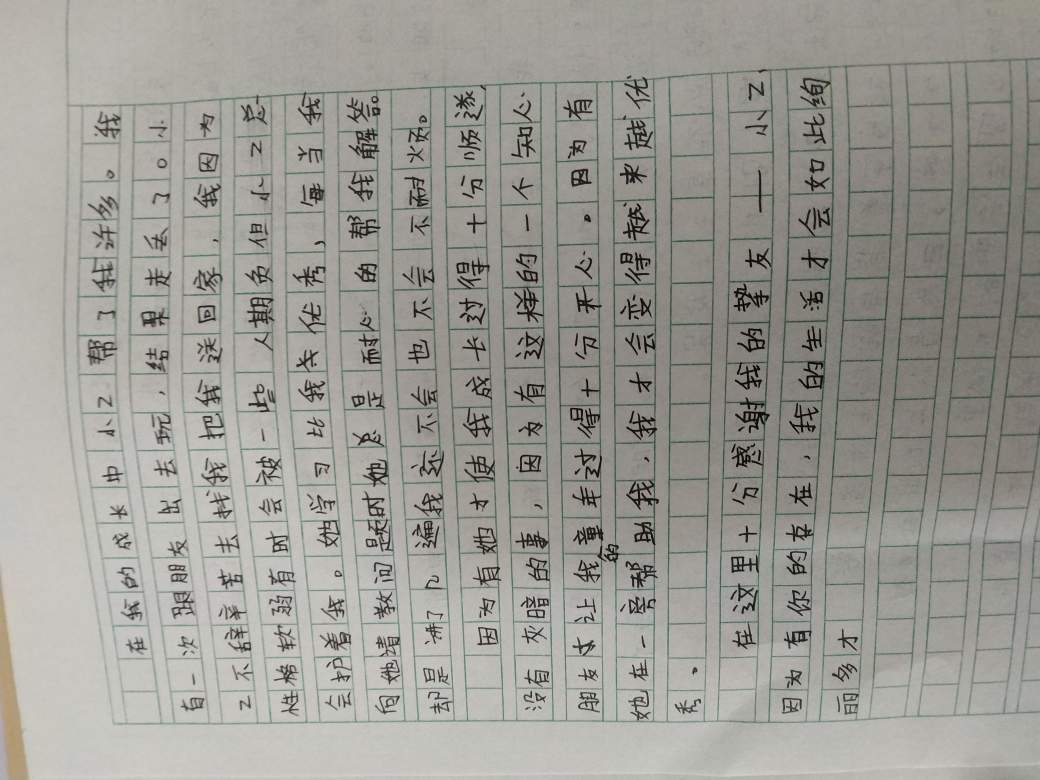 在我的成长中小Z帮了我许多。我
有一次跟朋友出去玩，结果走丢了。小
Z不辞辛苦去找我把我送回家，我因为
性格软弱有时会被一些人期负但小Z总
会护着我。她学习比我优秀，每当我
向她请教问题时她总是耐心的帮我解答。
却是讲了几遍我还不会也不会不耐烦。
因为有她才使我成长过得十分顺遂，
没有灰暗的事，因为有这样的一个知心
朋友才让我的童年过得十分开心。因为有
她在一旁帮助我，我才会变得越来越优
秀。
在这里十分感谢我的挚友——小Z，
因为有你的存在，我的生活才会如此绚
丽多才